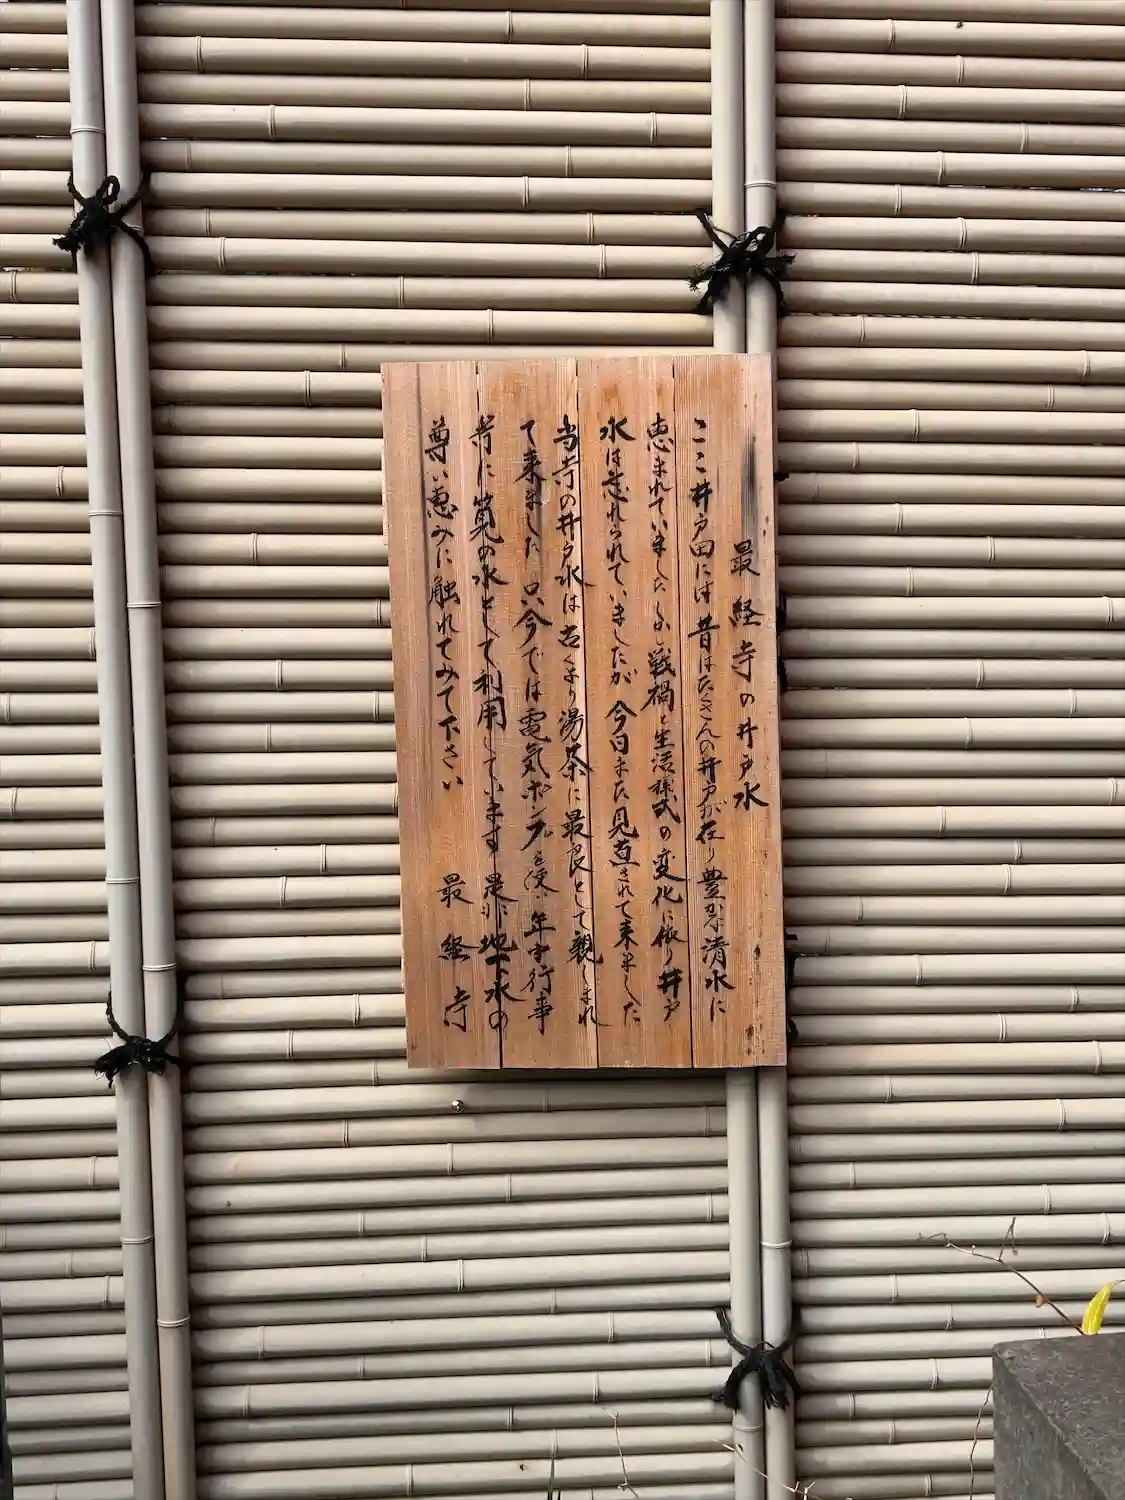 最経寺の井戸水
ここ井戸田には 昔はたくさんの井戸が在り豊かな清水に
恵まれていましたしかし戦禍と生活様式の変化に依り井戸
水は忘れられていましたが 今日また見直されて来ました
当寺の井戸水は古くより湯茶に最良として親しまれ
て来ました 只今では電気ポンプを使い年中行事
等に筧の水として利用しています 是非地下水の
尊い恵みに触れてみて下さい
最経寺